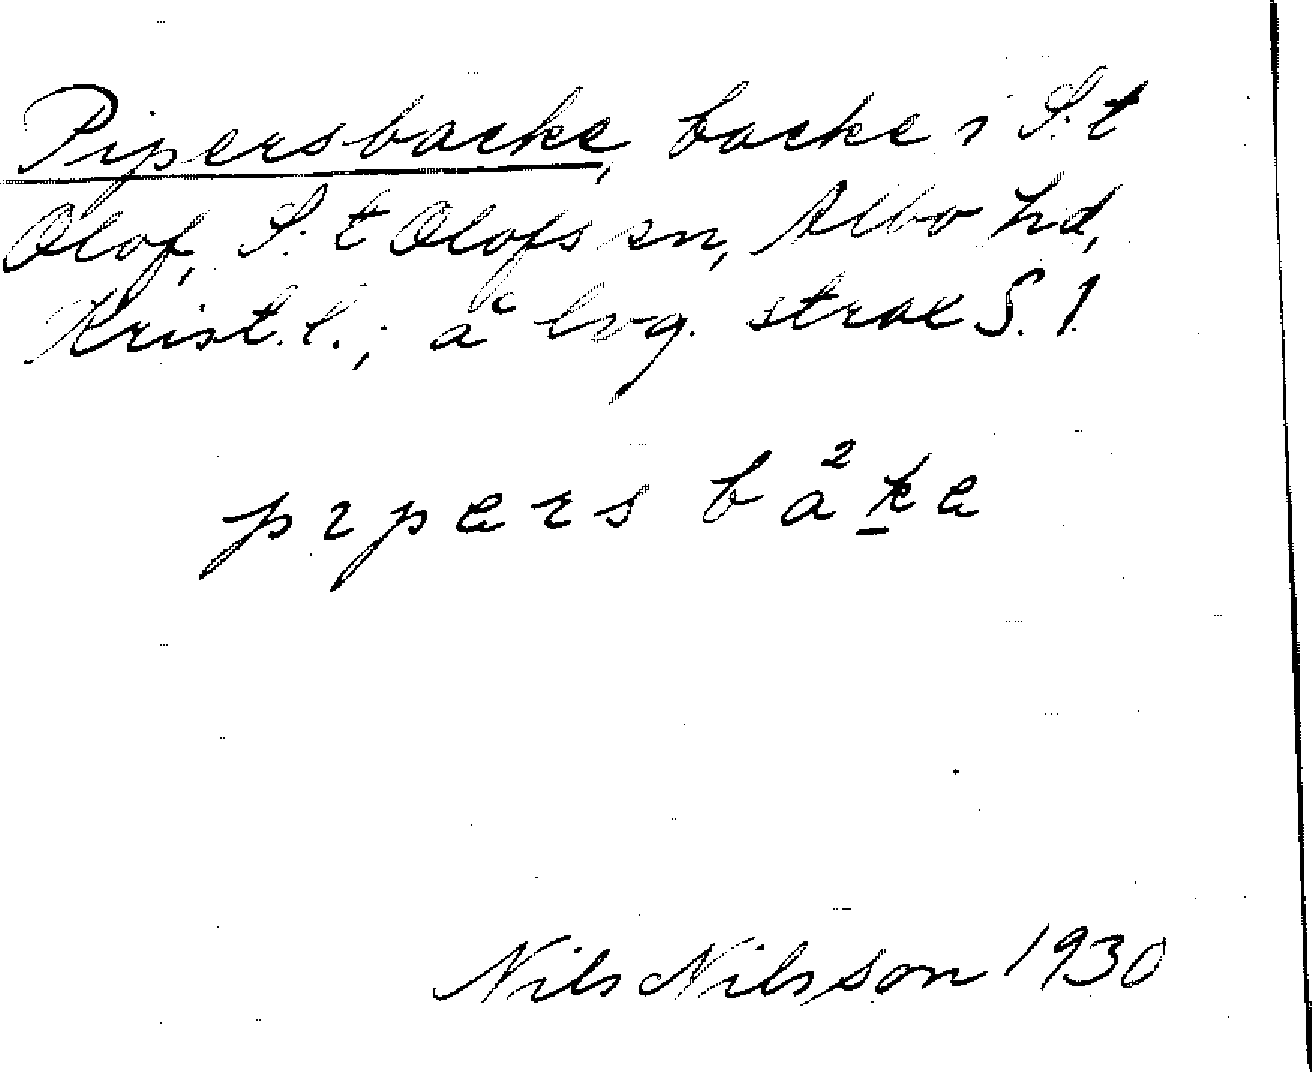 Pipersbacke, backe i S:t
Olof, S:t Olofs sn, Albo hd,
Krist. l.; å lvg. strax S. 1.
pipərs bà²kə
Nils Nilsson 1930